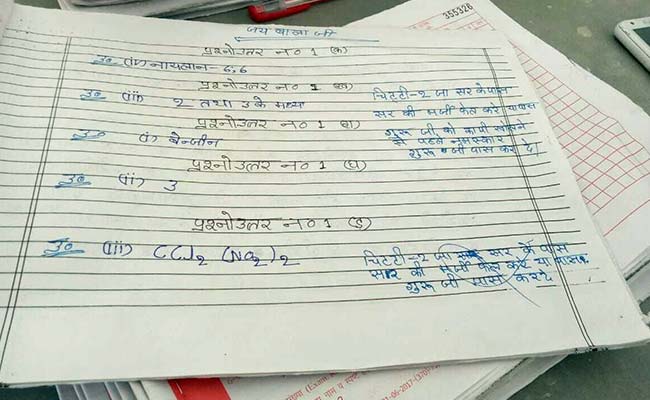 जय बाबा जी
355326
प्रश्नोउत्तर न० 1 (क)
उ० (iv) नायलोन-6,6
प्रश्नोउत्तर न० 1 (ख)
उ० (iii) 2 तथा 3 के मध्य
चिट्टी-2 जा सर के पास
सर की मर्जी फेल करे या पास
प्रश्नोउत्तर न० 1 (ग)
उ० (i) बेन्जीन
गुरू जी को कापी खोलने
से पहले नमस्कार
गुरू जी पास कर दे।
प्रश्नोउत्तर न० 1 (घ)
उ० (ii) 3
प्रश्नोउत्तर न० 1 (ड़)
उ० (iii) CCl2 (NO2)2
चिट्टी-2 जा सर के पास
सर की मर्जी फेल करे या पास
गुरू जी पास कर दे